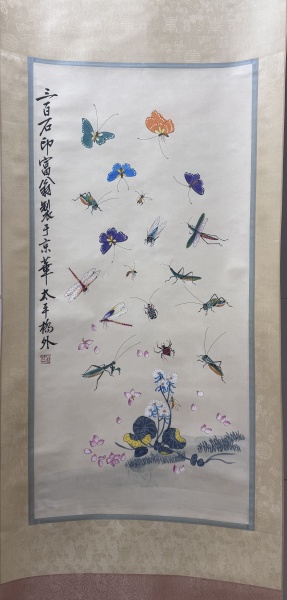 三百石印富翁製于京華太平橋外